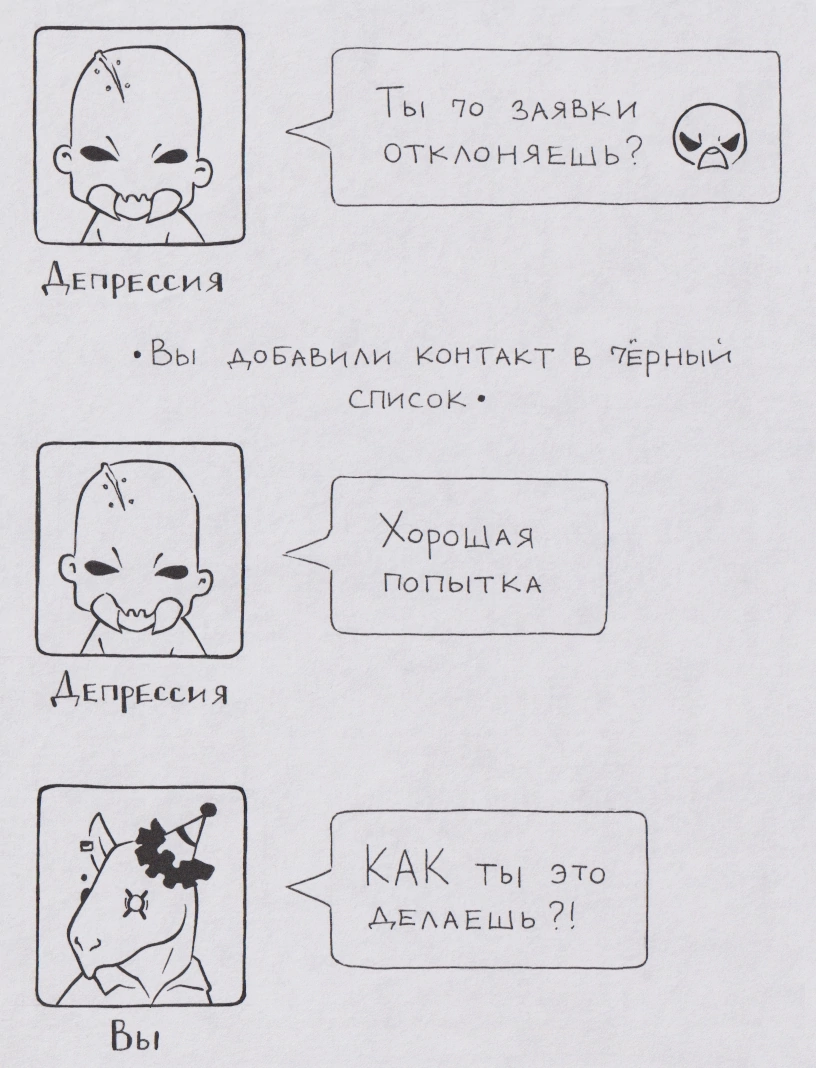 Ты чо заявки
отклоняешь?
Депрессия
• Вы добавили контакт в чёрный
список •
Хорошая
попытка
Депрессия
КАК ты это
делаешь?!
Вы